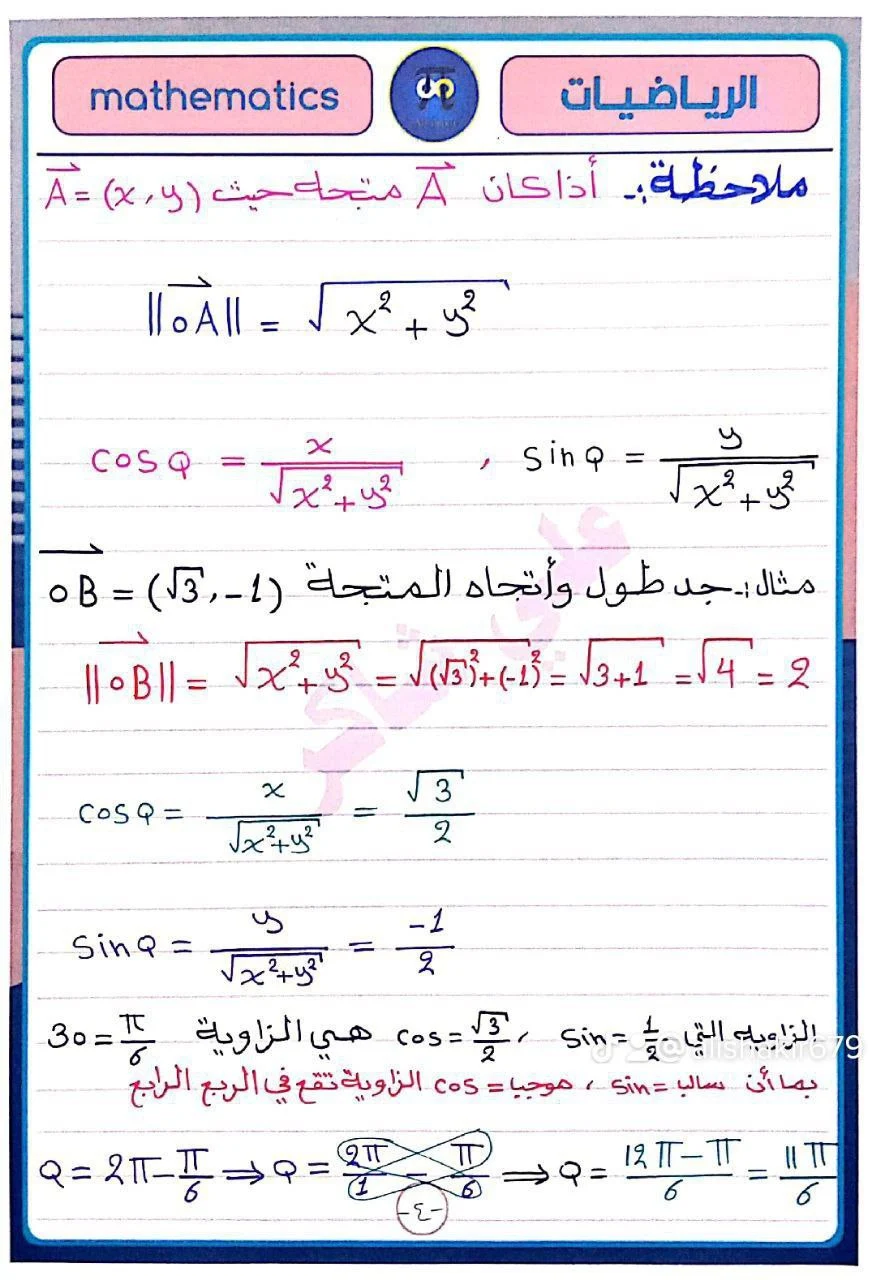 mathematics
الرياضيات
ملاحظة:- أذا كان A متجه حيث A = (x, y)
||oA|| = √(x² + y²)
cos Q = x / √(x² + y²) , sin Q = y / √(x² + y²)
مثال:- جد طول وأتجاه المتجة oB = (√3, -1)
||oB|| = √(x² + y²) = √((√3)² + (-1)²) = √(3+1) = √4 = 2
cos Q = x / √(x² + y²) = √3 / 2
sin Q = y / √(x² + y²) = -1 / 2
الزاويه التي sin = 1/2 , cos = √3/2 هي الزاوية 30 = π/6
بما أن سالب = sin , موجبا = cos الزاوية تقع في الربع الرابع
Q = 2π - π/6 ⟹ Q = 2π/1 - π/6 ⟹ Q = (12π - π)/6 = 11π/6
-٤-
علي شاكر
@alishakir679